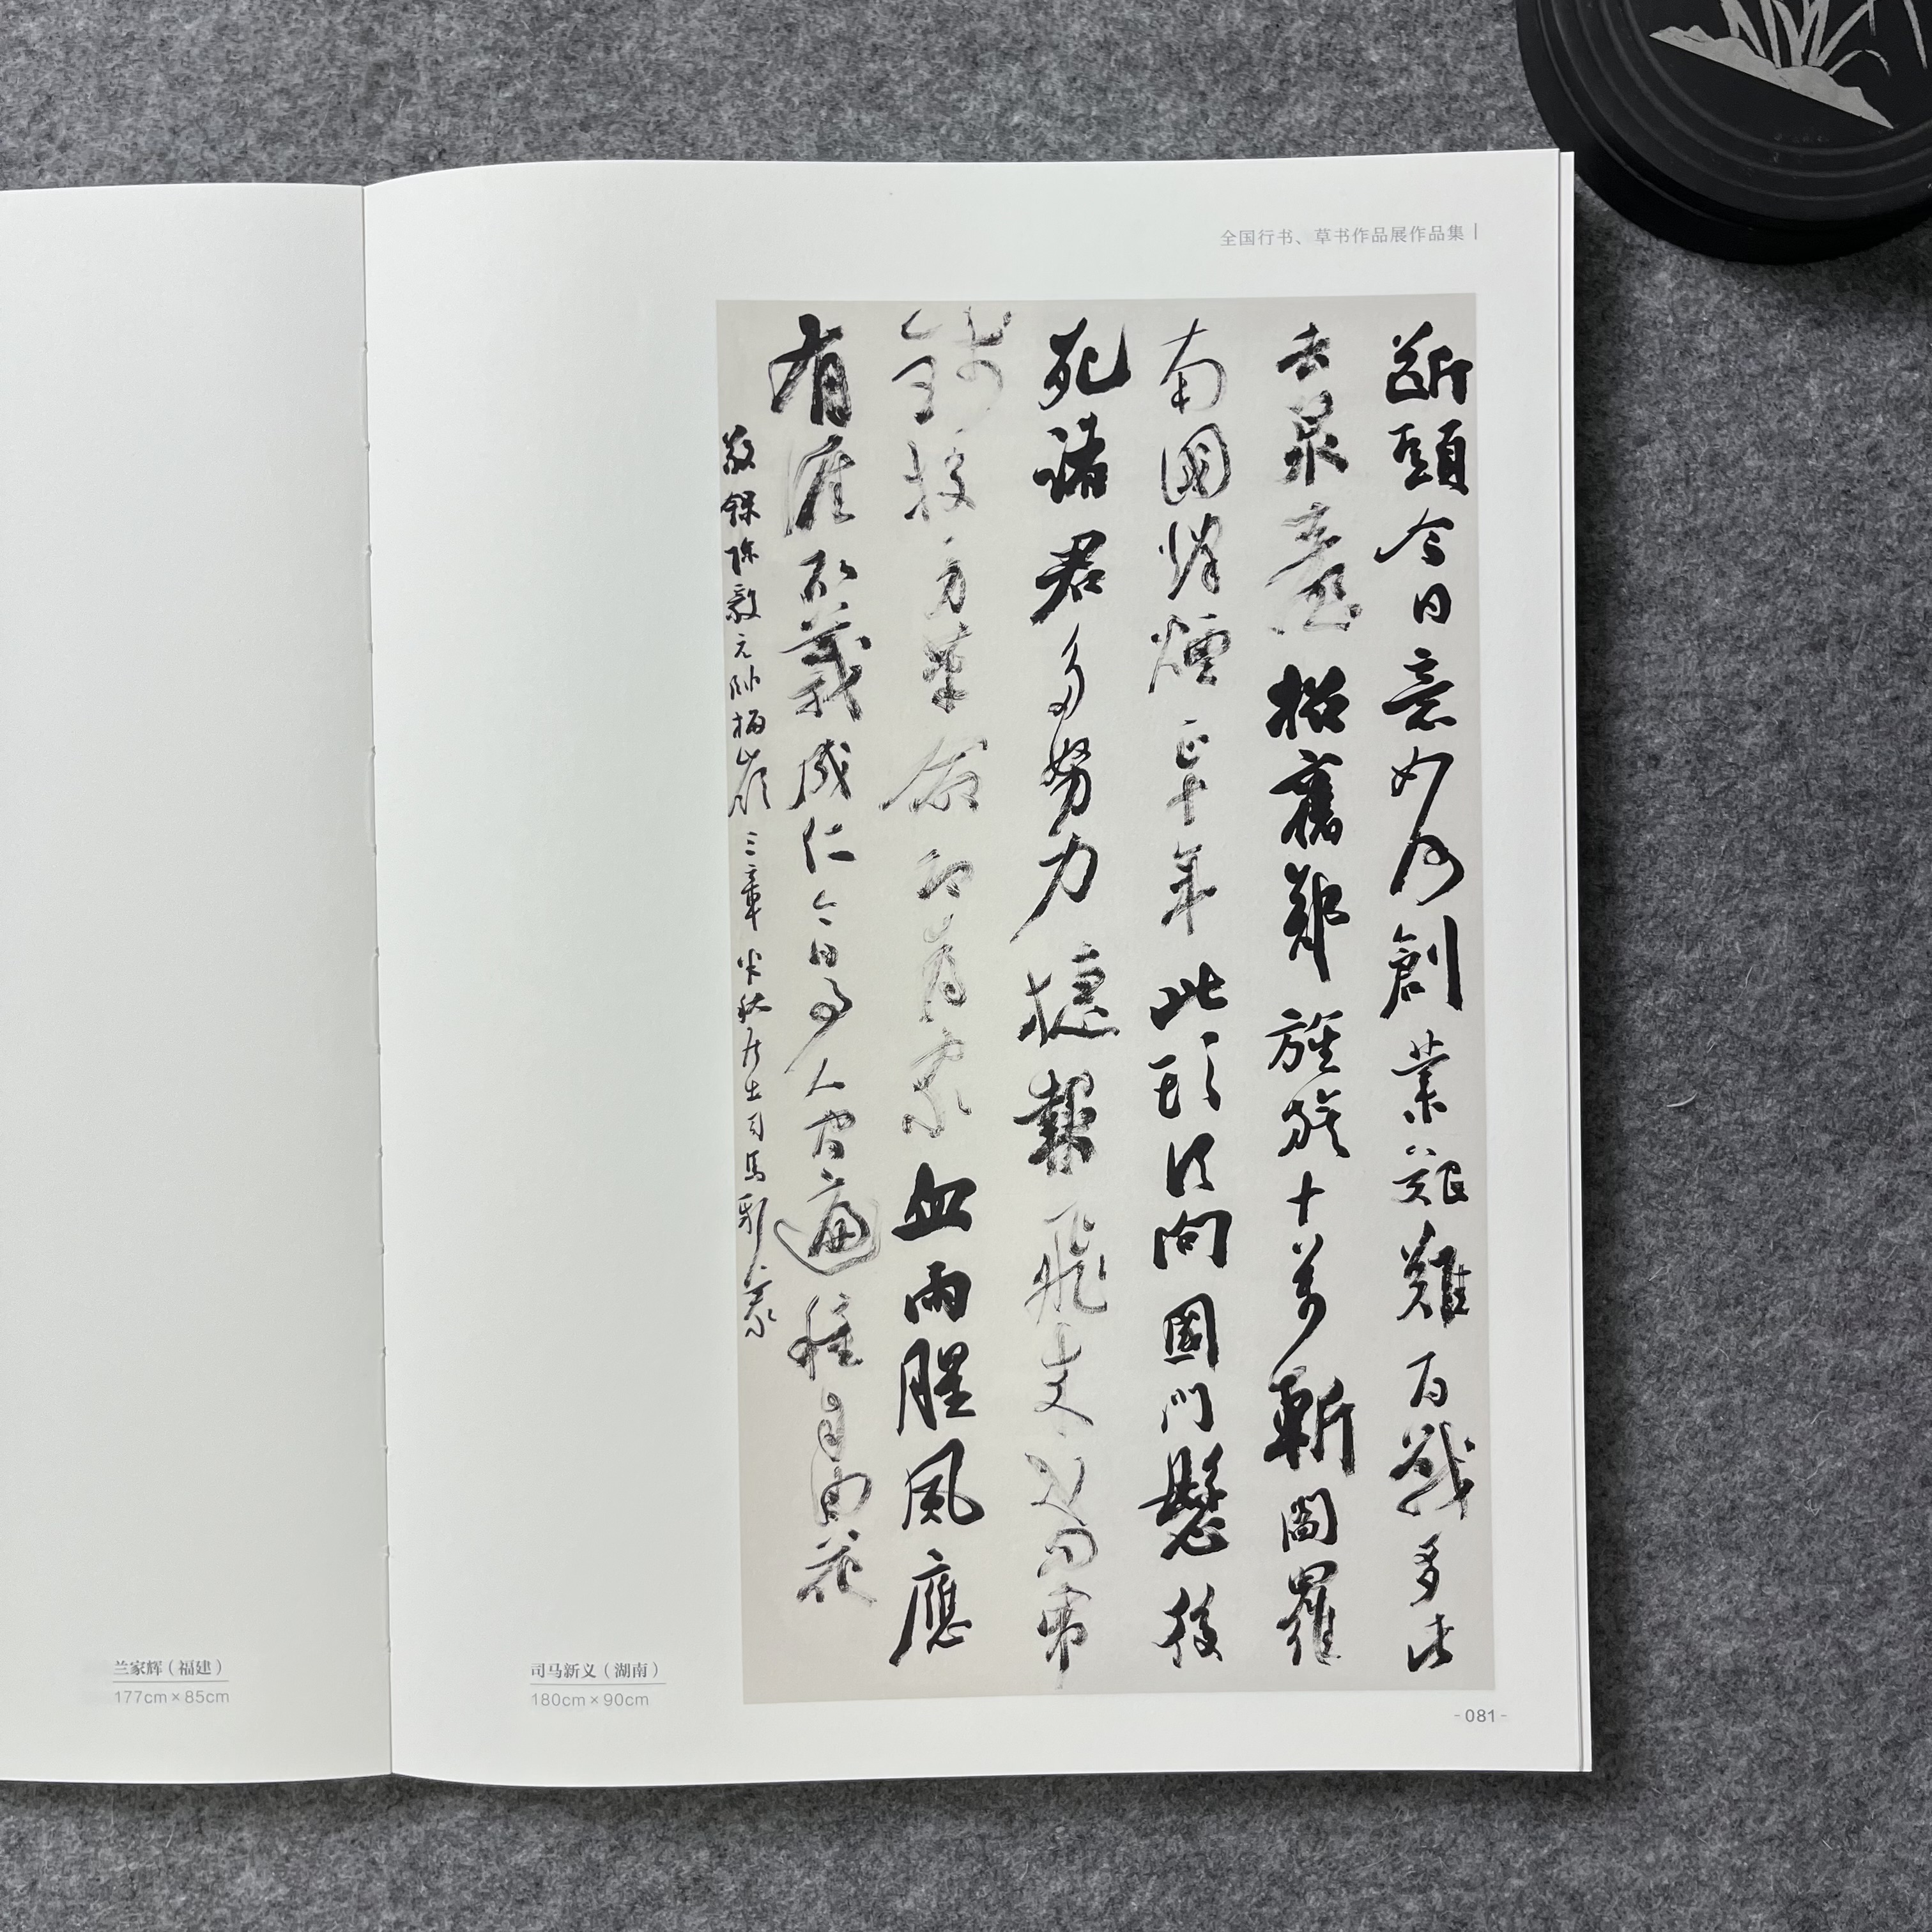 全国行书、草书作品展作品集
斷頭今日意如何創業艱難百戰多此
去泉臺招舊部旌旗十萬斬閻羅
南國烽煙正十年此頭須向國門懸後
死諸君多努力捷報飛来當帋
錢投身革命即為家血雨腥風應
有涯取義成仁今日事人間遍種自由花
敬録陳毅元帥梅嶺三章 居士司馬新義
兰家辉（福建）
177cm×85cm
司马新义（湖南）
180cm×90cm
-081-